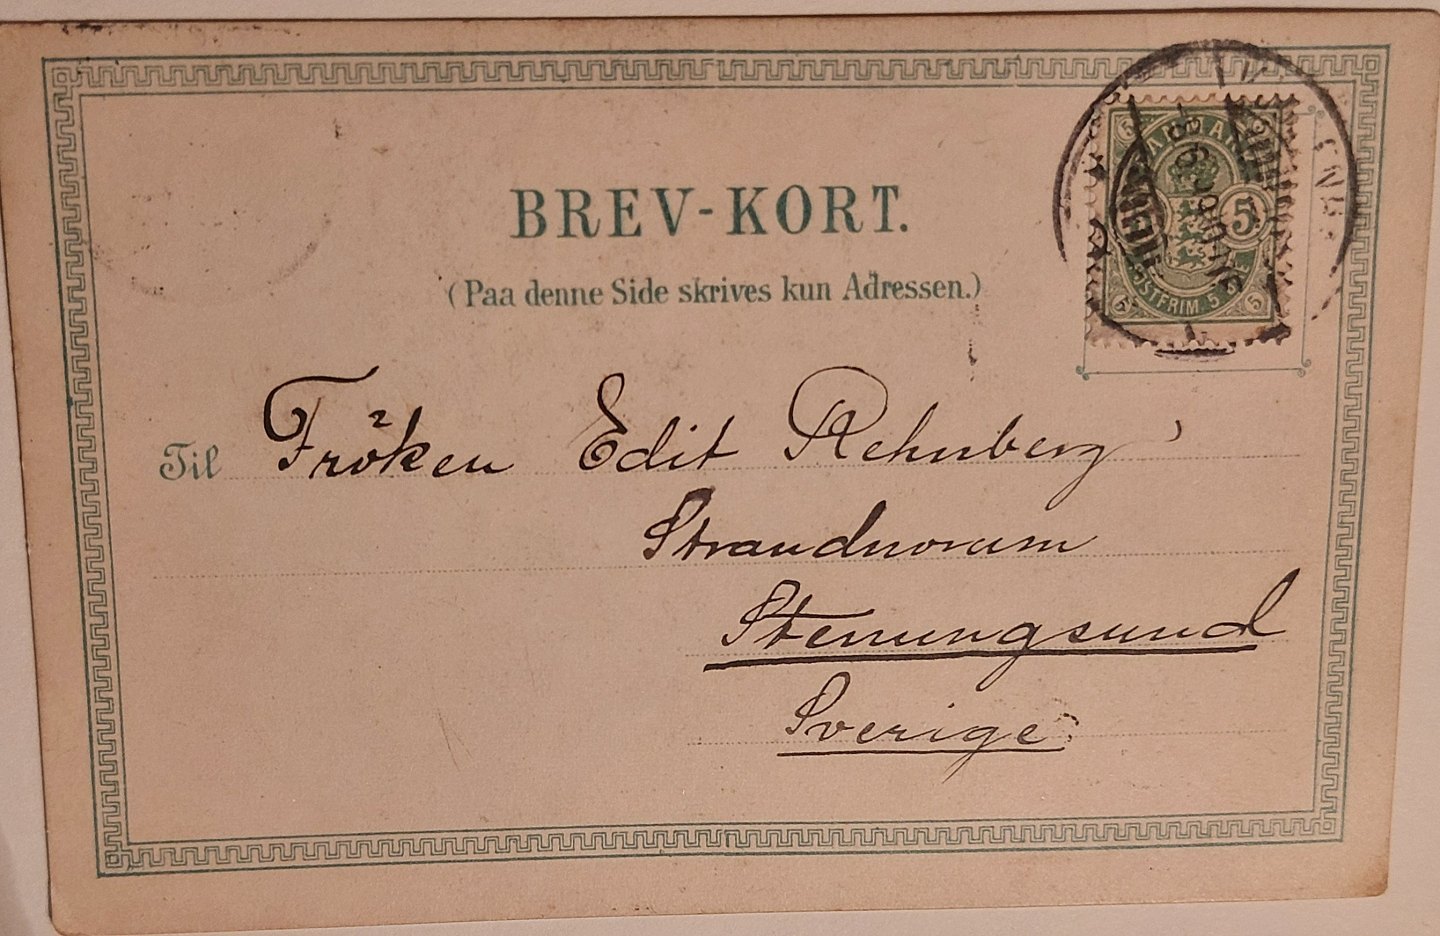 BREV-KORT.
(Paa denne Side skrives kun Adressen.)
5 5
5
POSTFRIM. 5
5 5
Til Fröken Edit Rehnberg
Strandnorum
Stenungsund
Sverige